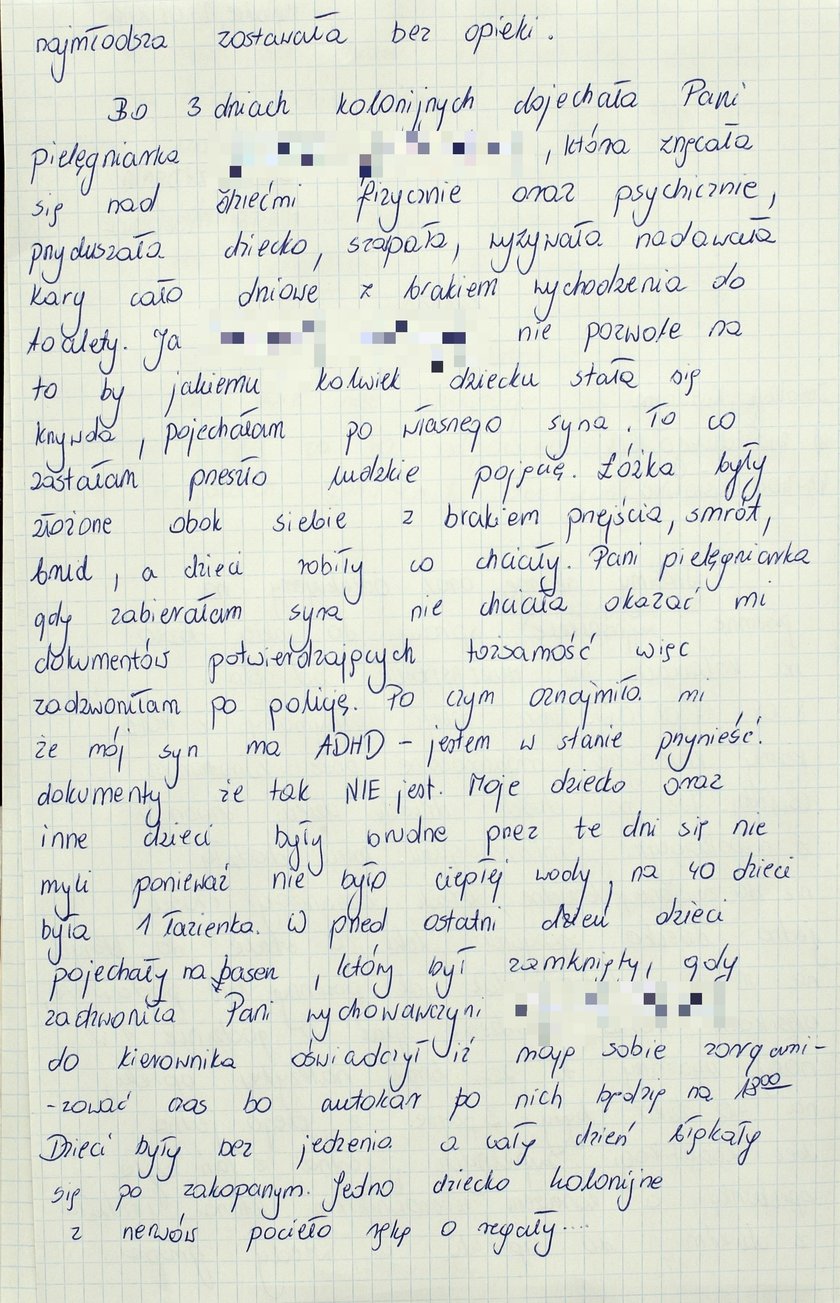 najmłodsza zostawała bez opieki.
Bo 3 dniach kolonijnych dojechała Pani
pielęgniarka , która znęcała
się nad dziećmi fizycznie oraz psychicznie,
przyduszała dziecko, szapała, wyzywała nadawała
kary cało dniowe z brakiem wychodzenia do
toalety. Ja nie pozwole na
to by jakiemu kolwiek dziecku stała się
krzywda, pojechałam po własnego syna. To co
zastałam przeszło ludzkie pojęcię. Łóżka były
złożone obok siebie z brakiem przejścia, smrót,
brud, a dzieci robiły co chciały. Pani pielęgniarka
gdy zabierałam syna nie chciała okazać mi
dokumentów potwierdzających tożsamość więc
zadzwoniłam po policję. Po czym oznajmiła mi
że mój syn ma ADHD - jestem w stanie przynieść.
dokumenty że tak NIE jest. Moje dziecko oraz
inne dzieci były brudne przez te dni się nie
myli ponieważ nie było ciepłej wody, na 40 dzieci
była 1 łazienka. W przed ostatni dzień dzieci
pojechały na basen, który był zamknięty, gdy
zadzwoniła Pani wychowawczyni
do kierownika oświadczył iż mają sobie zorgani-
-zować czas bo autokar po nich będzię na 18<sup>00</sup>
Dzieci były bez jedzenia a cały dzień błąkały
się po zakopanym. Jedno dziecko kolonijne
z nerwów pocięło rękę o regały....